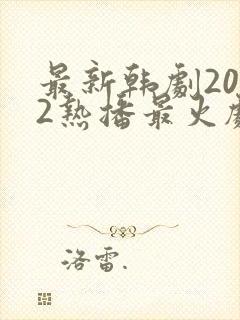 最新韩劇20
2热播最火劇
洛雷.